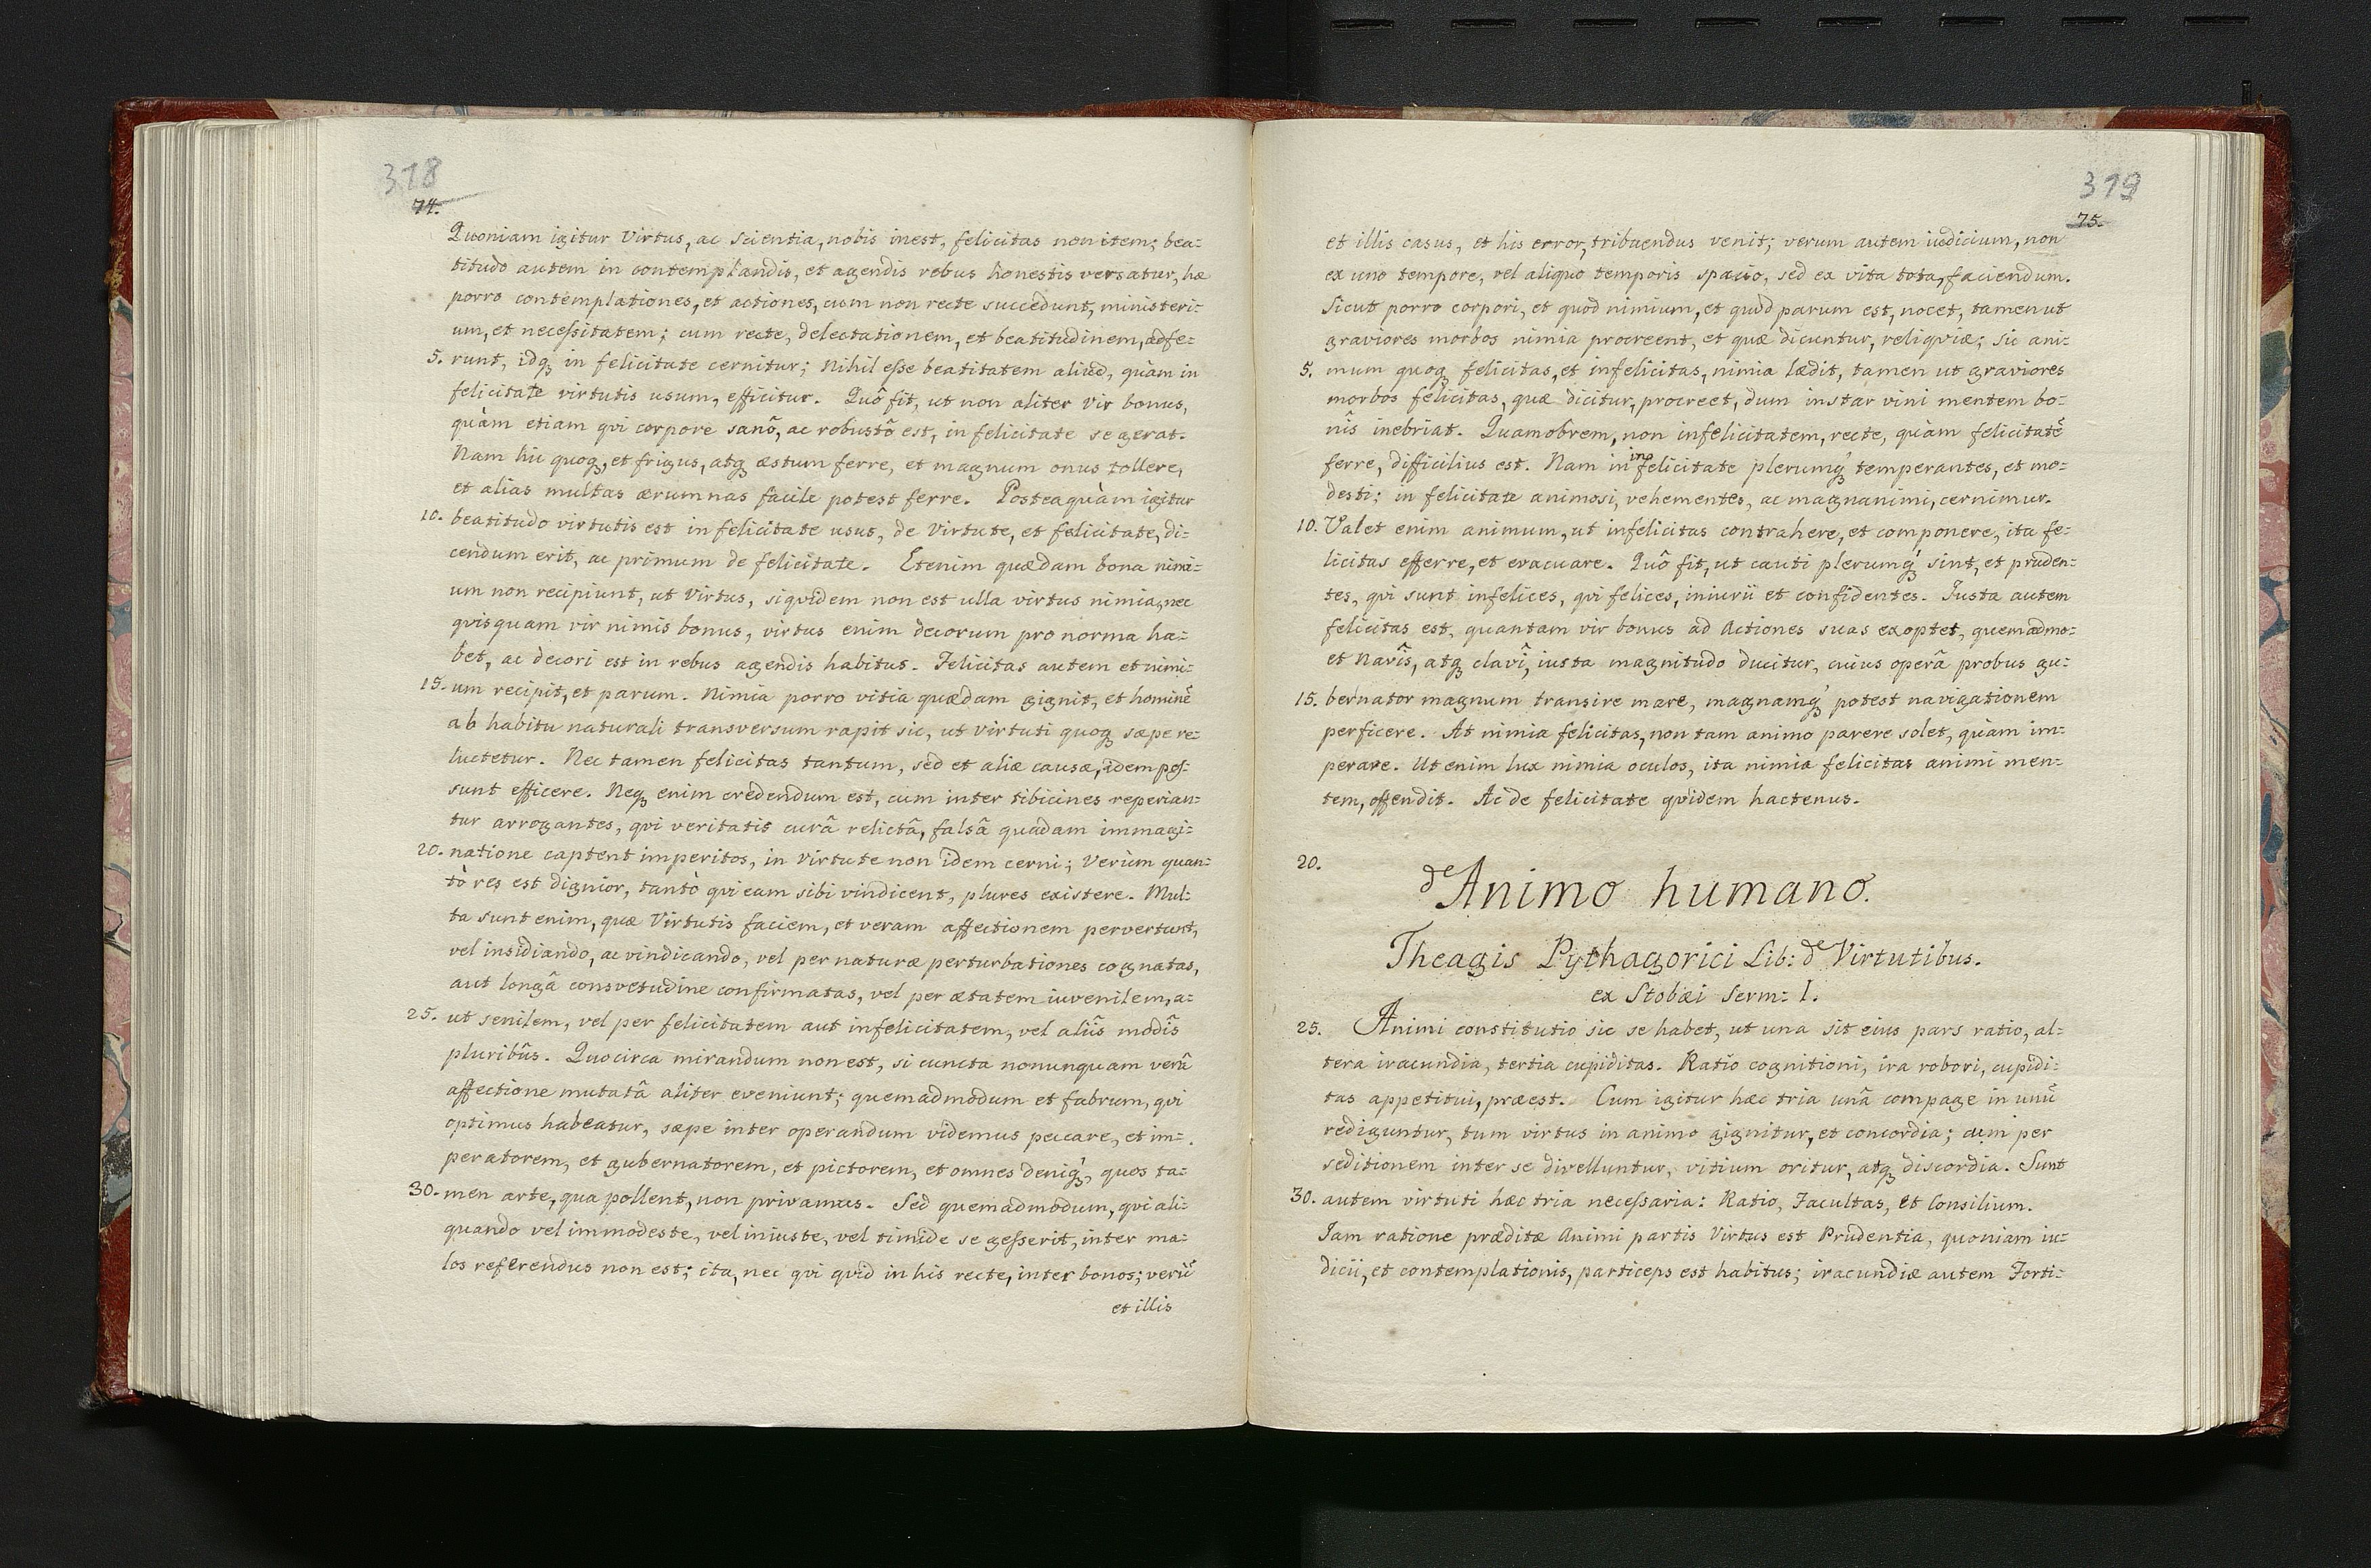 318
74.
Quoniam igitur Virtus, ac scientia, nobis inest, felicitas non item; bea=
titudo autem in contemplandis, et agendis rebus honestis versatur, hæ
porro contemplationes, et actiones, cum non recte succedunt, ministeri=
um, et neceſsitatem; cum recte, delectationem, et beatitudinem, adfe=
5. runt, idqꝫ in felicitate cernitur; Nihil eſse beatitatem aliud, quàm in
felicitate virtutis usum, efficitur. Quô fit, ut non aliter Vir bonus,
quàm etiam qvi corpore sanô, ac robustô est, in felicitate se gerat.
Nam hic quoqꝫ, et frigus, atqꝫ æstum ferre, et magnum onus tollere,
et alias multas ærumnas facile potest ferre. Posteaquàm igitur
10. beatitudo virtutis est in felicitate usus, de Virtute, et felicitate, di=
cendum erit, ac primum de felicitate. Etenim quædam bona nimi=
um non recipiunt, ut Virtus, siqvidem non est ulla virtus nimia, nec
qvisquam vir nimis bonus, virtus enim decorum pro norma ha=
bet, ac decori est in rebus agendis habitus. Felicitas autem et nimi=
15. um recipit, et parum. Nimia porro vitia quædam gignit, et hominẽ
ab habitu naturali transversum rapit sic, ut virtuti quoqꝫ sæpe re=
luctetur. Nec tamen felicitas tantum, sed et aliæ causæ, idem poſ=
sunt efficere. Neqꝫ enim credendum est, cum inter tibicines reperian=
tur arrogantes, qvi veritatis curâ relictâ, falsâ quadam immagi=
20. natione captent imperitos, in Virtute non idem cerni; Verùm quan=
tò res est dignior, tantò qvi eam sibi vindicent, plures existere. Mul=
ta sunt enim, quæ Virtutis faciem, et veram affectionem pervertunt,
vel insidiando, ac vindicando, vel per naturæ perturbationes cognatas,
aut longâ consvetudine confirmatas, vel per ætatem iuvenilem, a=
25. ut senilem, vel per felicitatem aut infelicitatem, vel aliîs modîs
pluribûs. Quocirca mirandum non est, si cuncta nonunquam verâ
affectione mutatâ aliter eveniunt; quemadmodum et fabrum, qvi
optimus habeatur, sæpe inter operandum videmus peccare, et im=
peratorem, et gubernatorem, et pictorem, et omnes deniqꝫ, quos ta=
30. men arte, qua pollent, non privamus. Sed quemadmodum, qvi ali=
quando vel immodeste, vel iniuste, vel timide se geſserit, inter ma=
los referendus non est; ita, nec qvi qvid in his recte, inter bonos; verũ
et illis
319
75.
et illis casus, et his error, tribuendus venit; verum autem iudicium, non
ex uno tempore, vel aliquo temporis spacio, sed ex vita tota, faciendum.
Sicut porro corpori, et quod nimium, et quod parum est, nocet, tamen ut
graviores morbos nimia procreent, et quæ dicuntur, reliqviæ; sic ani=
5. mum quoqꝫ felicitas, et infelicitas, nimia lædit, tamen ut graviores
morbos felicitas, quæ dicitur, procreet, dum instar vini mentem bo=
nîs inebriat. Quamobrem, non infelicitatem, recte, quàm felicitatẽ
ferre, difficilius est. Nam in infelicitate plerumqꝫ temperantes, et mo=
desti; in felicitate animosi, vehementes, ac magnanimi, cernimur.
10. Valet enim animum, ut infelicitas contrahere, et componere, ita fe=
licitas efferre, et evacuare. Quô fit, ut cauti plerumqꝫ sint, et pruden=
tes, qvi sunt infelices, qvi felices, iniurii et confidentes. Iusta autem
felicitas est, quantam vir bonus ad Actiones suas exoptet, quemadmo=
et Navîs, atqꝫ clavî, iusta magnitudo ducitur, cuius operâ probus gu=
15. bernator magnum transire mare, magnamqꝫ potest navigationem
perficere. At nimia felicitas, non tam animo parere solet, quàm im=
perare. Ut enim lux nimia oculos, ita nimia felicitas animi men=
tem, offendit. Ac de felicitate qvidem hactenus.
20.
de Animo humano.
Theagis Pythagorici Lib: de Virtutibus.
ex Stobæi Serm: I.
25. Animi constitutio sic se habet, ut una sit eius pars ratio, al=
tera iracundia, tertia cupiditas. Ratio cognitioni, ira robori, cupidi=
tas appetitui, præest. Cum igitur hæc tria unâ compage in unũ
rediguntur, tum virtus in animo gignitur, et concordia; cum per
seditionem inter se divelluntur, vitium oritur, atqꝫ discordia. Sunt
30. autem virtuti hæc tria neceſsaria: Ratio, Facultas, et Consilium.
Iam ratione præditæ Animi partis Virtus est Prudentia, quoniam iu=
dicii, et contemplationis, particeps est habitus; iracundiæ autem Forti=